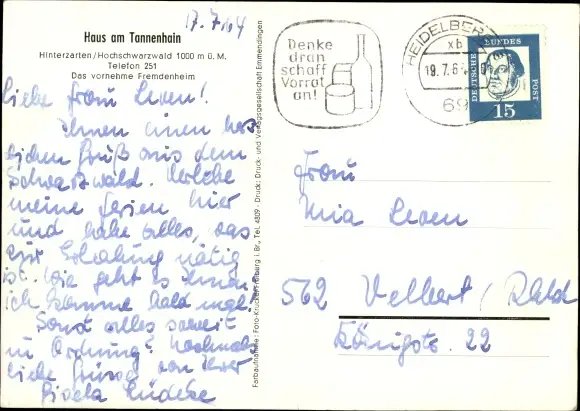 17.7.64
Haus am Tannenhain
Hinterzarten/Hochschwarzwald 1000 m ü. M.
Telefon 251
Das vornehme Fremdenheim
Liebe Frau Leven!
Ihnen einen herz
lichen Gruß aus dem
Schwarzwald. Verlebe
meine Ferien hier
und habe alles, was
zur Erholung nötig
ist. Wie geht es Ihnen,
ich komme bald mal.
Sonst alles soweit
in Ordnung? Nochmals
liebe Grüsse von Ihrer
Gisela Lüdeke
Farbaufnahme: Foto-Kruckenhauser Freiburg i. Br., Tel. 4829 · Druck: Druck- und Verlagsgesellschaft Emmendingen
Denke
dran
schaff
Vorrat
an!
HEIDELBERG
xb
19.7.6
69
DEUTSCHE
BUNDES
POST
15
Frau
Mia Leven
562 Velbert/Rhld
Königstr. 22